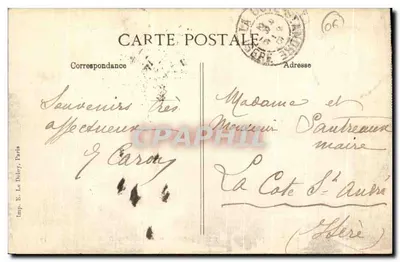 CARTE POSTALE
Correspondance
Adresse
Souvenirs très
affectueux
Madame et
Monsieur Pautreaux
maire
La Cote St André
(Isère)
Imp. E. Le Deley, Paris
CPAPHIL
06